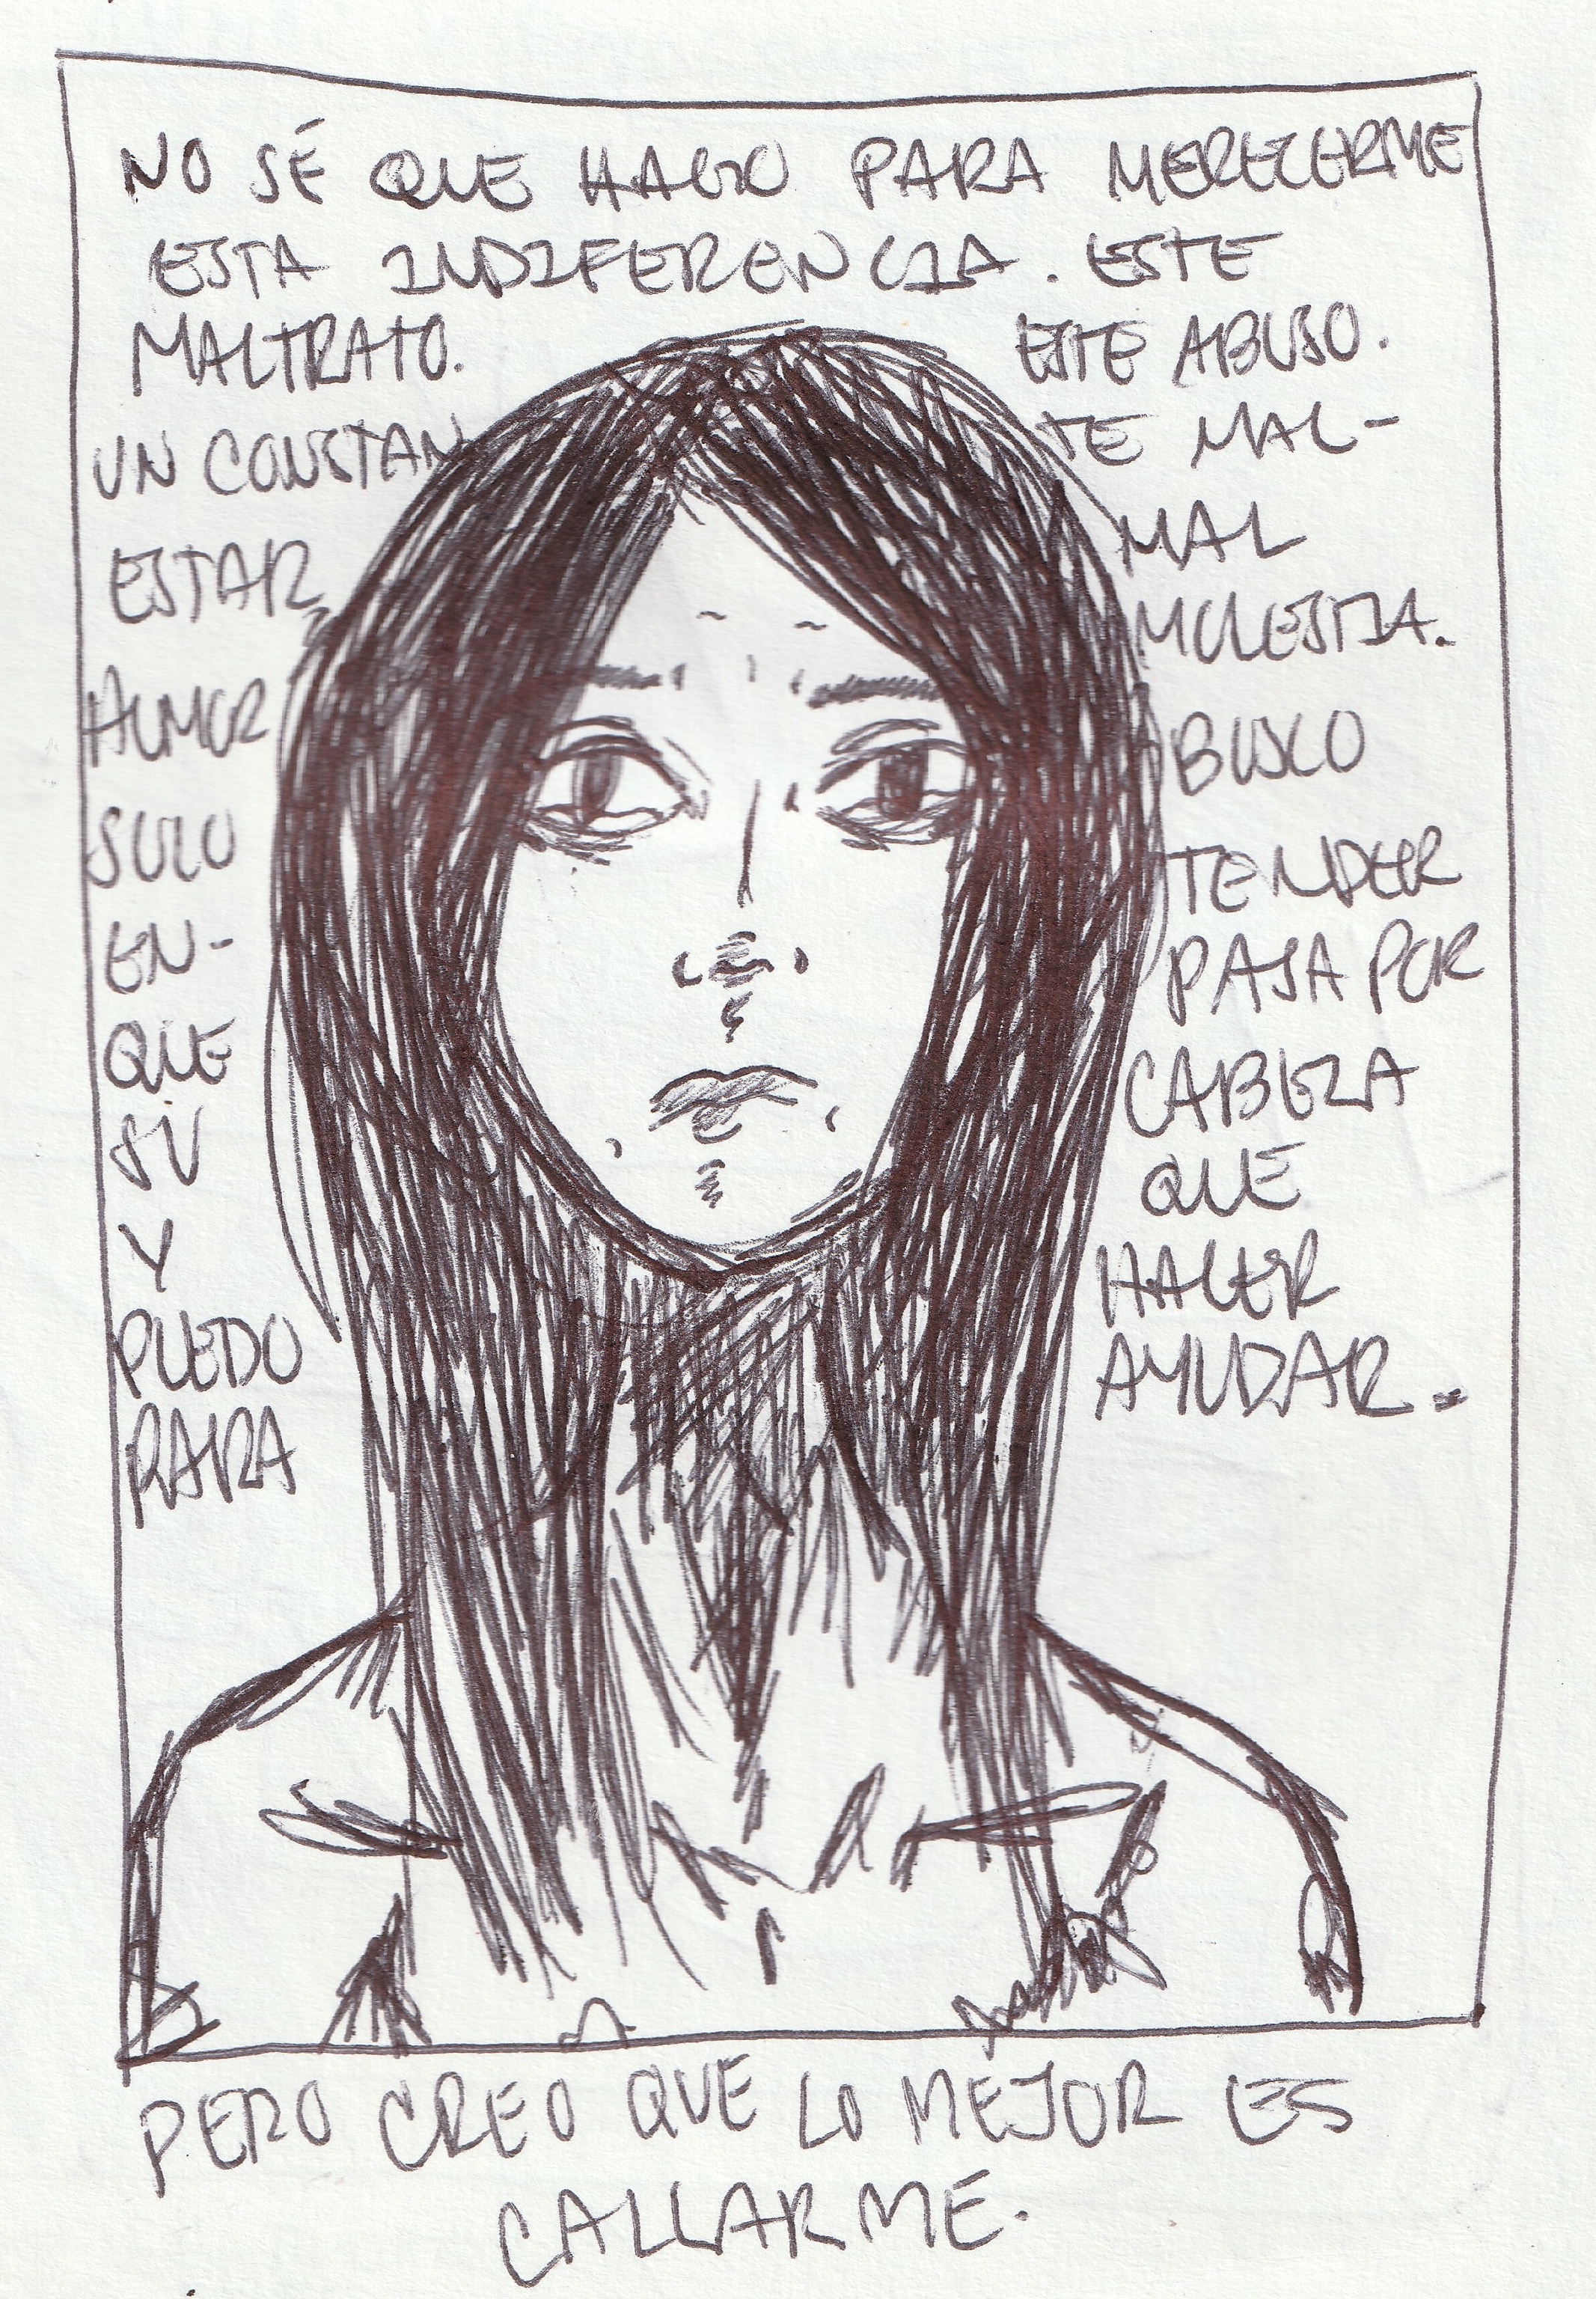 NO SÉ QUE HAGO PARA MERECERME
ESTA INDIFERENCIA. ESTE
MALTRATO. ESTE ABUSO.
UN CONSTAN TE MAL-
ESTAR, MAL
HUMOR MOLESTIA.
SOLO BUSCO
EN- TENDER
QUE PASA POR
SU CABEZA
Y QUE
PUEDO HACER
PARA AYUDAR.
PERO CREO QUE LO MEJOR ES
CALLARME.